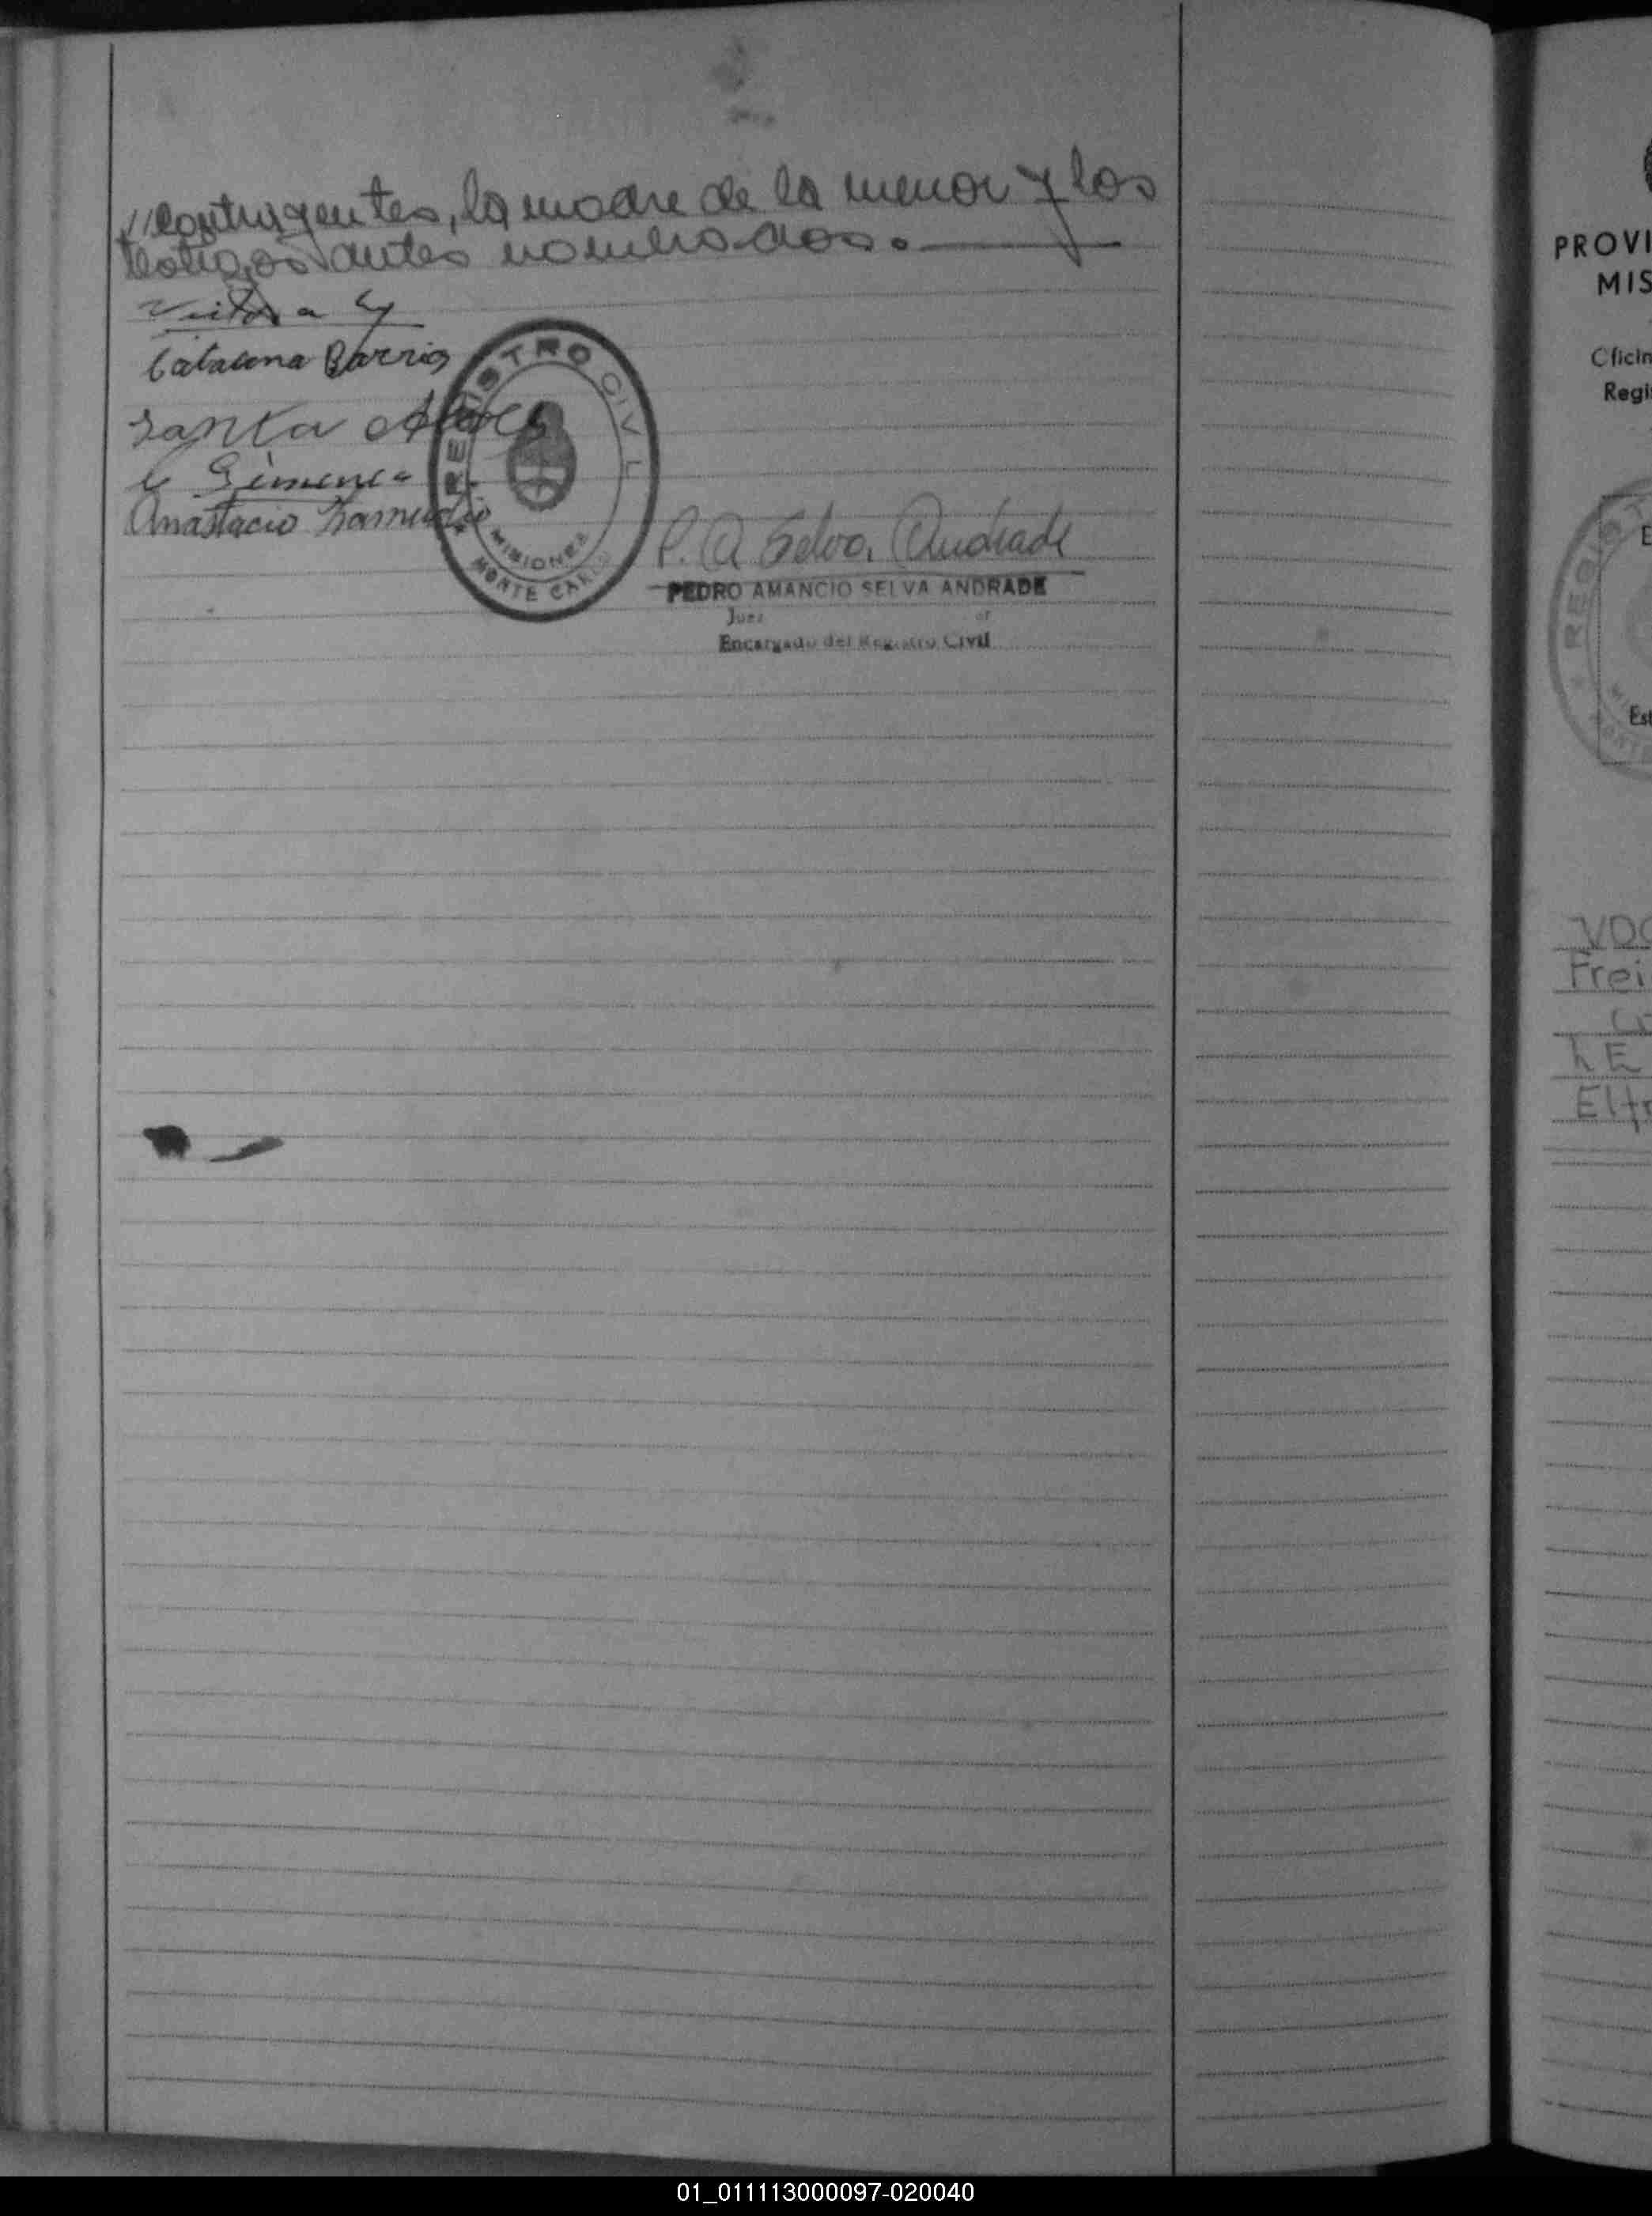 //Contrayentes, la madre de la menor y los
testigos antes nombrados.
Catalina Barrios
Santa
Gimenez
Anastacio Zamudio
REGISTRO CIVIL
MISIONES
MONTE CARLO
P. A Selva Andrade
PEDRO AMANCIO SELVA ANDRADE
Juez
Encargado del Registro Civil
PROVI
MIS
Oficin
Regi
REGIST
Est
Frei
Elfr
01_011113000097-020040